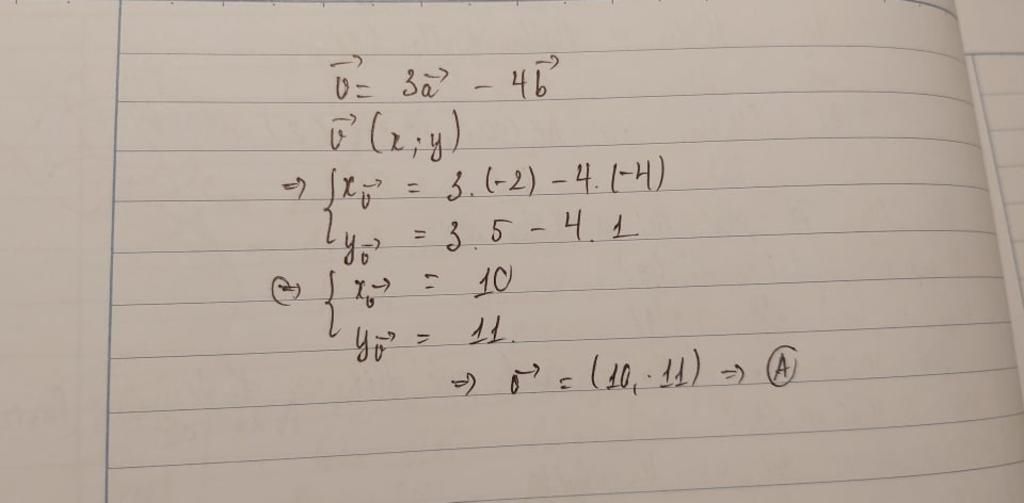 v⃗ = 3a⃗ - 4b⃗
v⃗ (x; y)
⇒ { x_v⃗ = 3.(-2) - 4.(-4)
y_v⃗ = 3.5 - 4.1
⇔ { x_v⃗ = 10
y_v⃗ = 11.
⇒ v⃗ = (10, 11) ⇒ Ⓐ